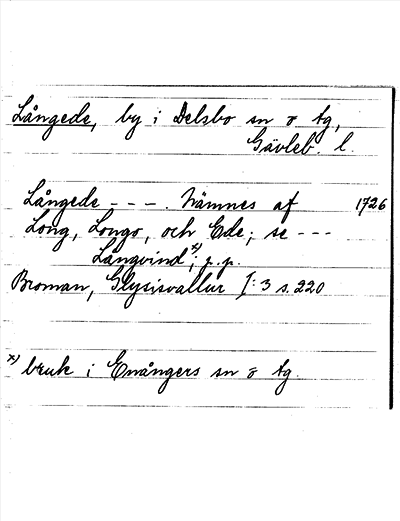 Långede, by i Delsbo sn o tg,
Gävleb. l.
Långede - - - . Nämnes af 1726
Long, Longo, och Ede; se - - -
Långvind x); q.p.
Broman, Glysisvallur I:3 s. 220
x) bruk i Enångers sn o tg.